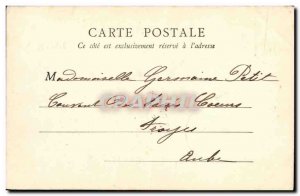 CARTE POSTALE
Ce côté est exclusivement réservé à l'adresse
Mademoiselle Germaine Petit
Couvent
Troyes
Aube